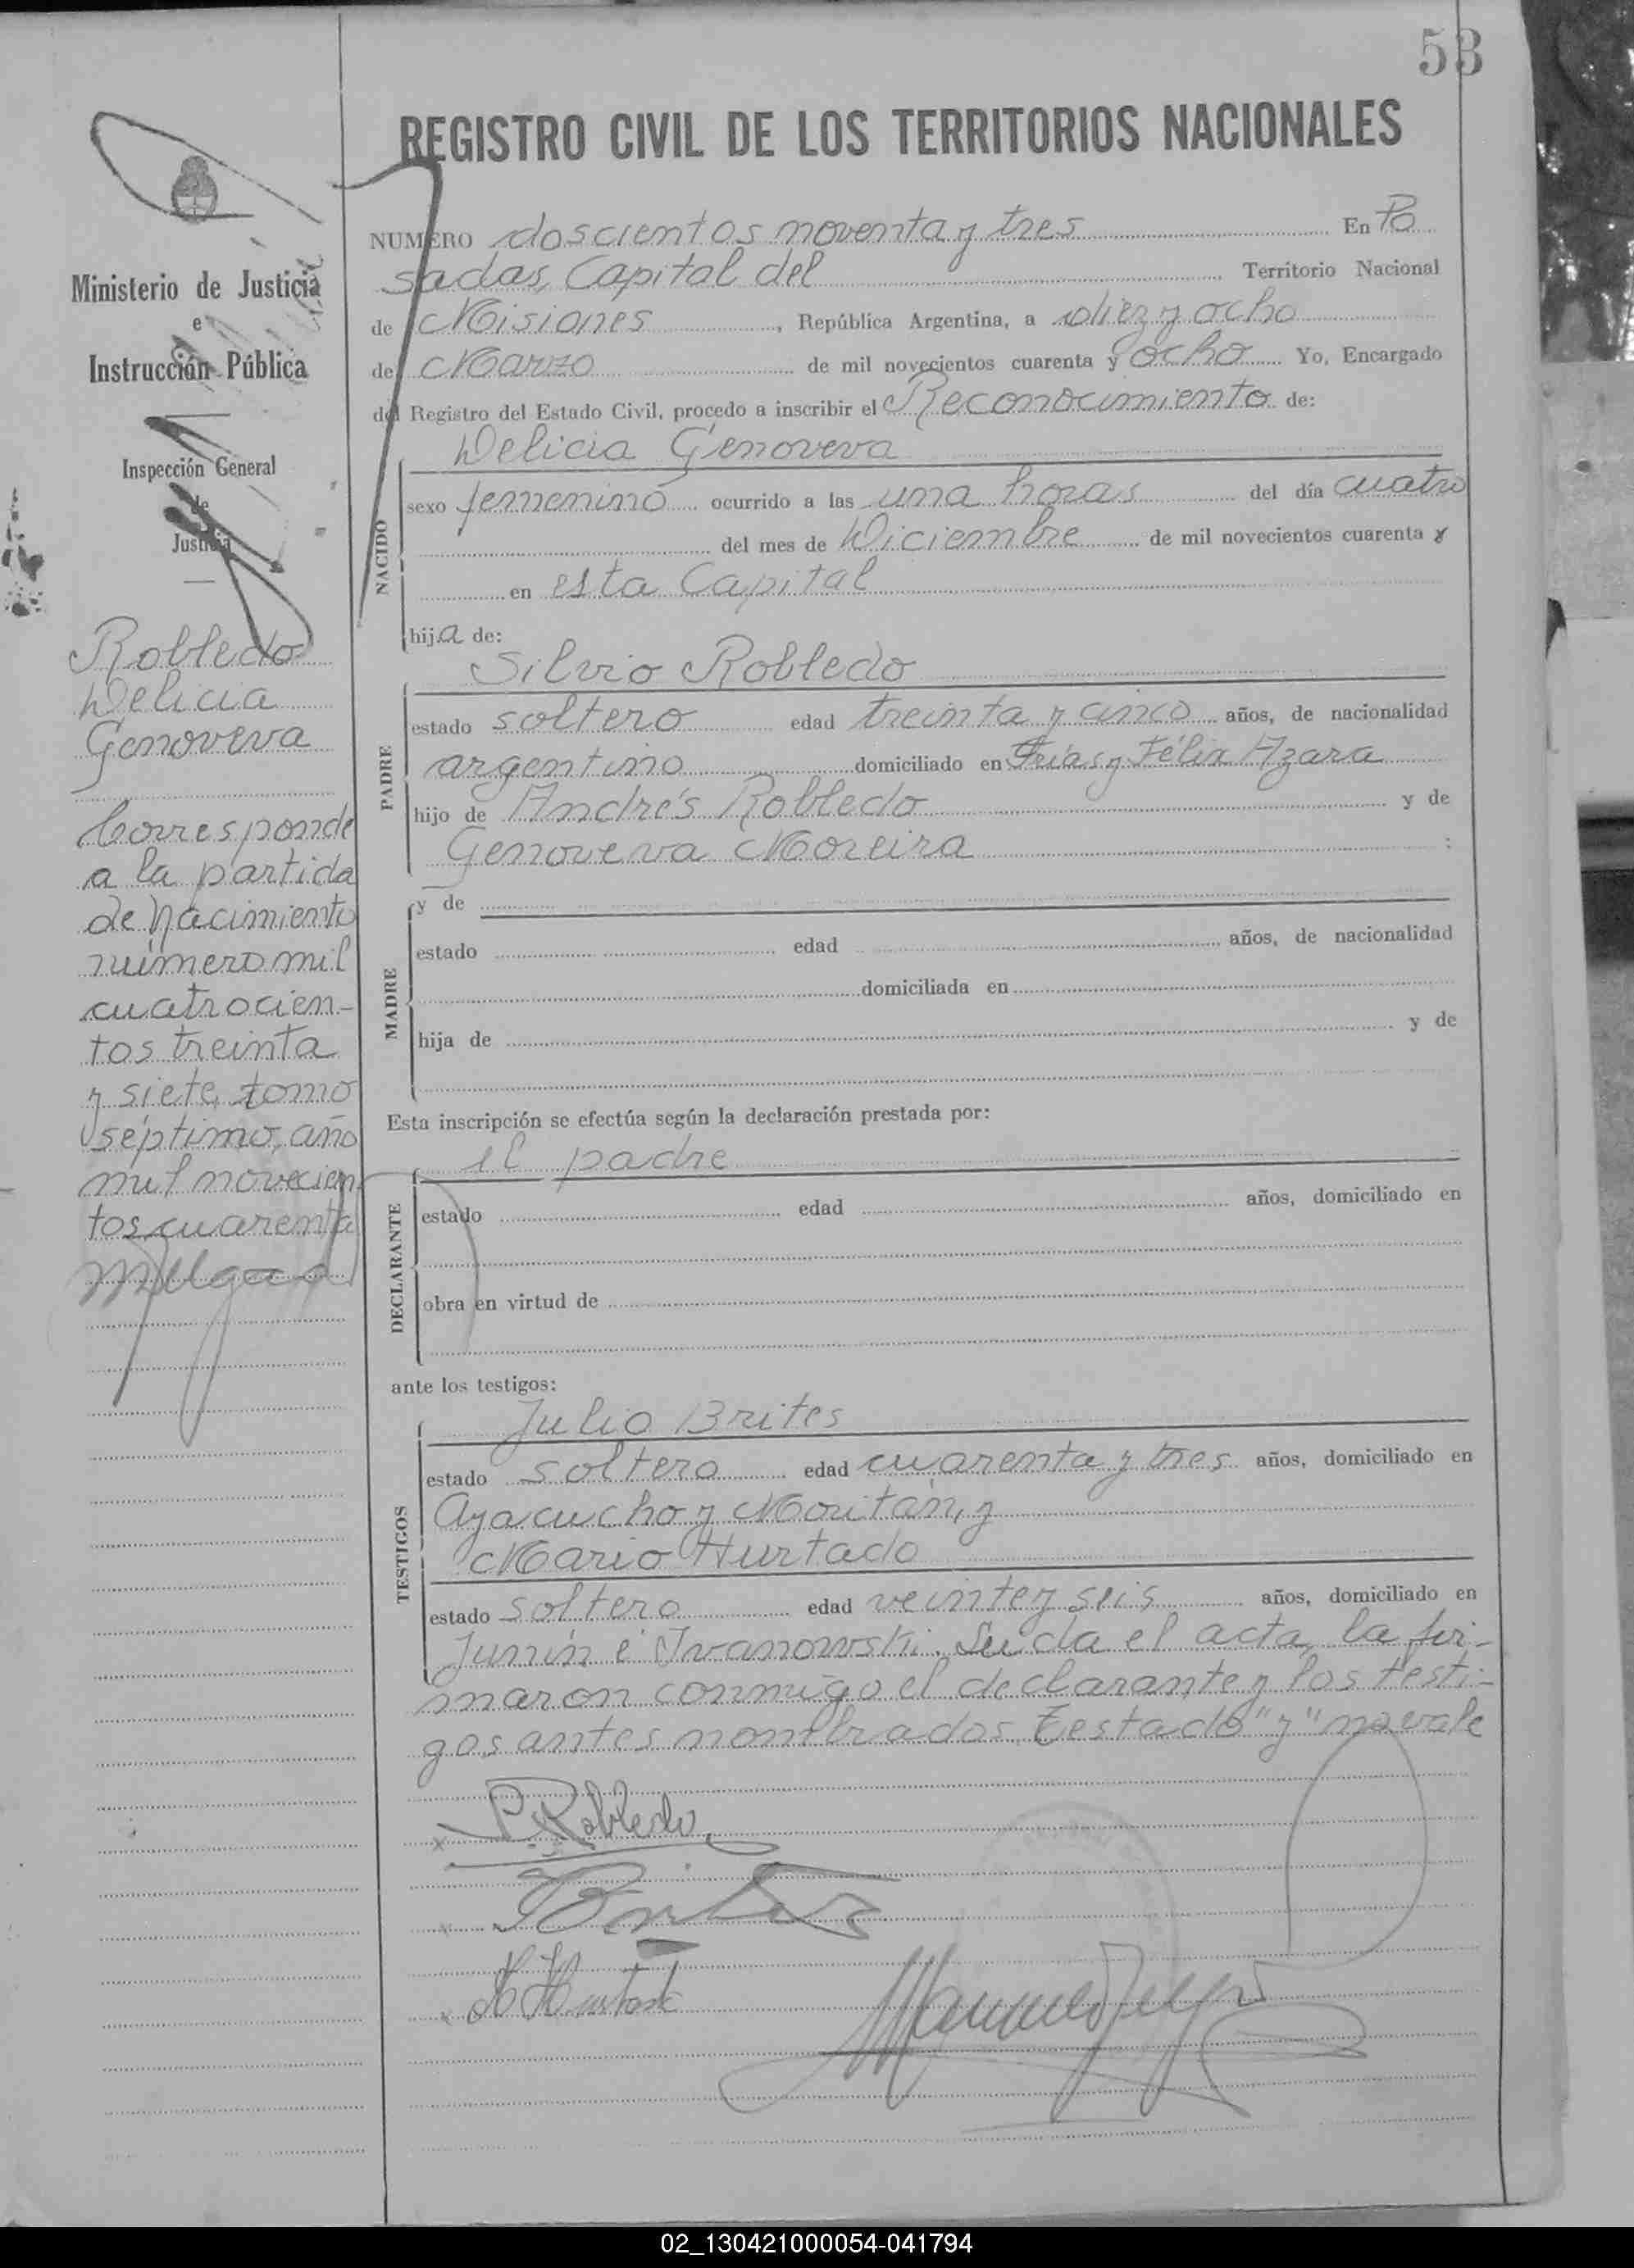 53
REGISTRO CIVIL DE LOS TERRITORIOS NACIONALES
Ministerio de Justicia
e
Instrucción Pública
Inspección General
de
Justicia
Robledo
Delicia
Genoveva
Corresponde
a la partida
de nacimiento
número mil
cuatrocien-
tos treinta
y siete, tomo
séptimo, año
mil novecien
tos cuarenta
NUMERO doscientos noventa y tres En Po
sadas, Capital del Territorio Nacional
de Misiones, República Argentina, a diez y ocho
de Marzo de mil novecientos cuarenta y ocho Yo, Encargado
del Registro del Estado Civil, procedo a inscribir el Reconocimiento de:
Delicia Genoveva
NACIDO
sexo femenino ocurrido a las una horas del día cuatro
del mes de Diciembre de mil novecientos cuarenta y
en esta Capital
hija de:
Silvio Robledo
PADRE
estado soltero edad treinta y cinco años, de nacionalidad
argentino domiciliado en Frías y Félix Azara
hijo de Andrés Robledo y de
Genoveva Moreira ;
MADRE
y de
estado edad años, de nacionalidad
domiciliada en
hija de y de
Esta inscripción se efectúa según la declaración prestada por:
el padre
DECLARANTE
estado edad años, domiciliado en
obra en virtud de
ante los testigos:
Julio Brites
TESTIGOS
estado soltero edad cuarenta y tres años, domiciliado en
Ayacucho y Moritán, y
Mario Hurtado
estado soltero edad veinte y seis años, domiciliado en
Junín é Ivanowski. Leída el acta, la fir-
maron conmigo el declarante y los testi-
gos antes nombrados. Testado "y" no vale
Robledo
Brites
Hurtado
02_130421000054-041794